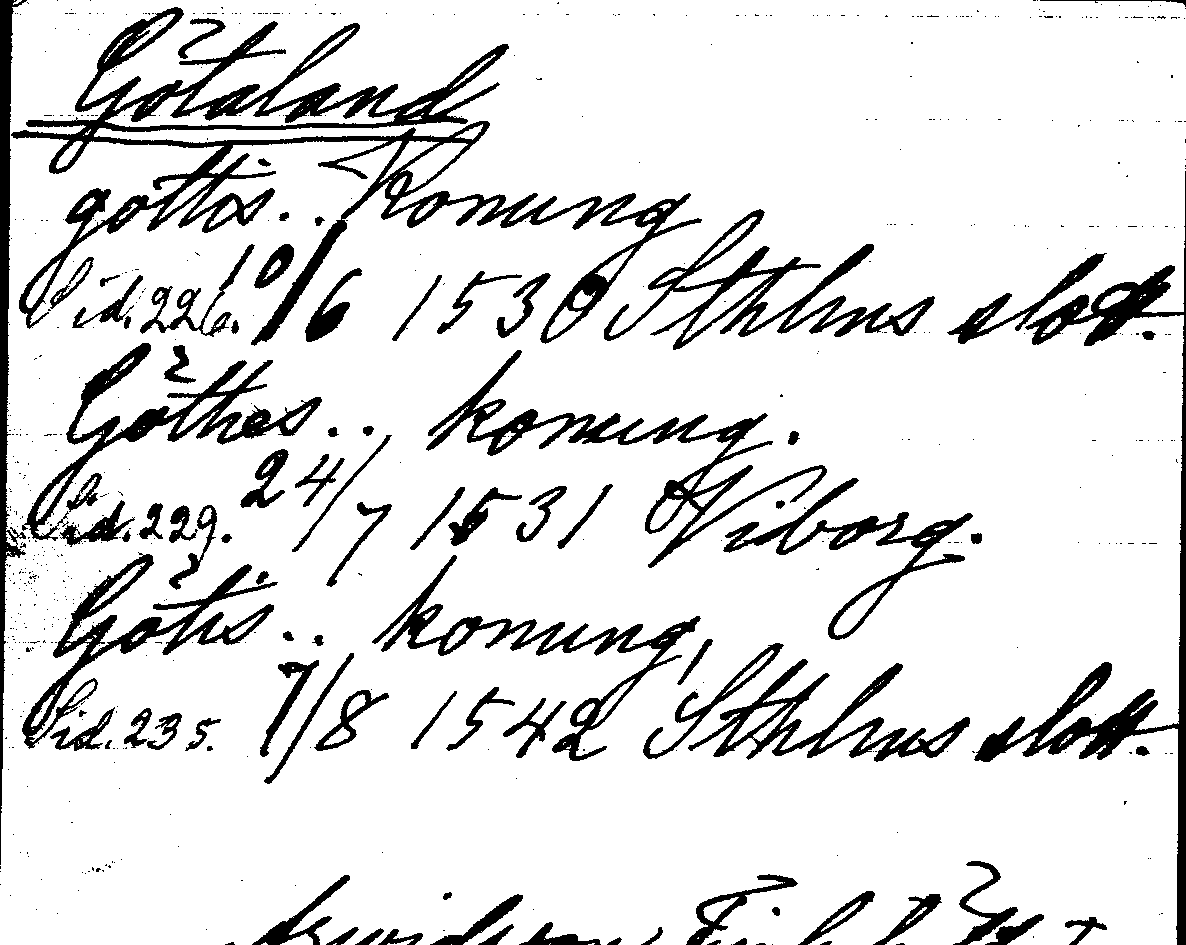 Götaland
göttis.. Konung
Sid. 226. 10/6 1530 Sthlms slott.
Göthes.., konung.
Sid. 229. 24/7 1531 Viborg.
Götis.. konung,
Sid. 235. 7/8 1542 Sthlms slott.
Arvidsson,